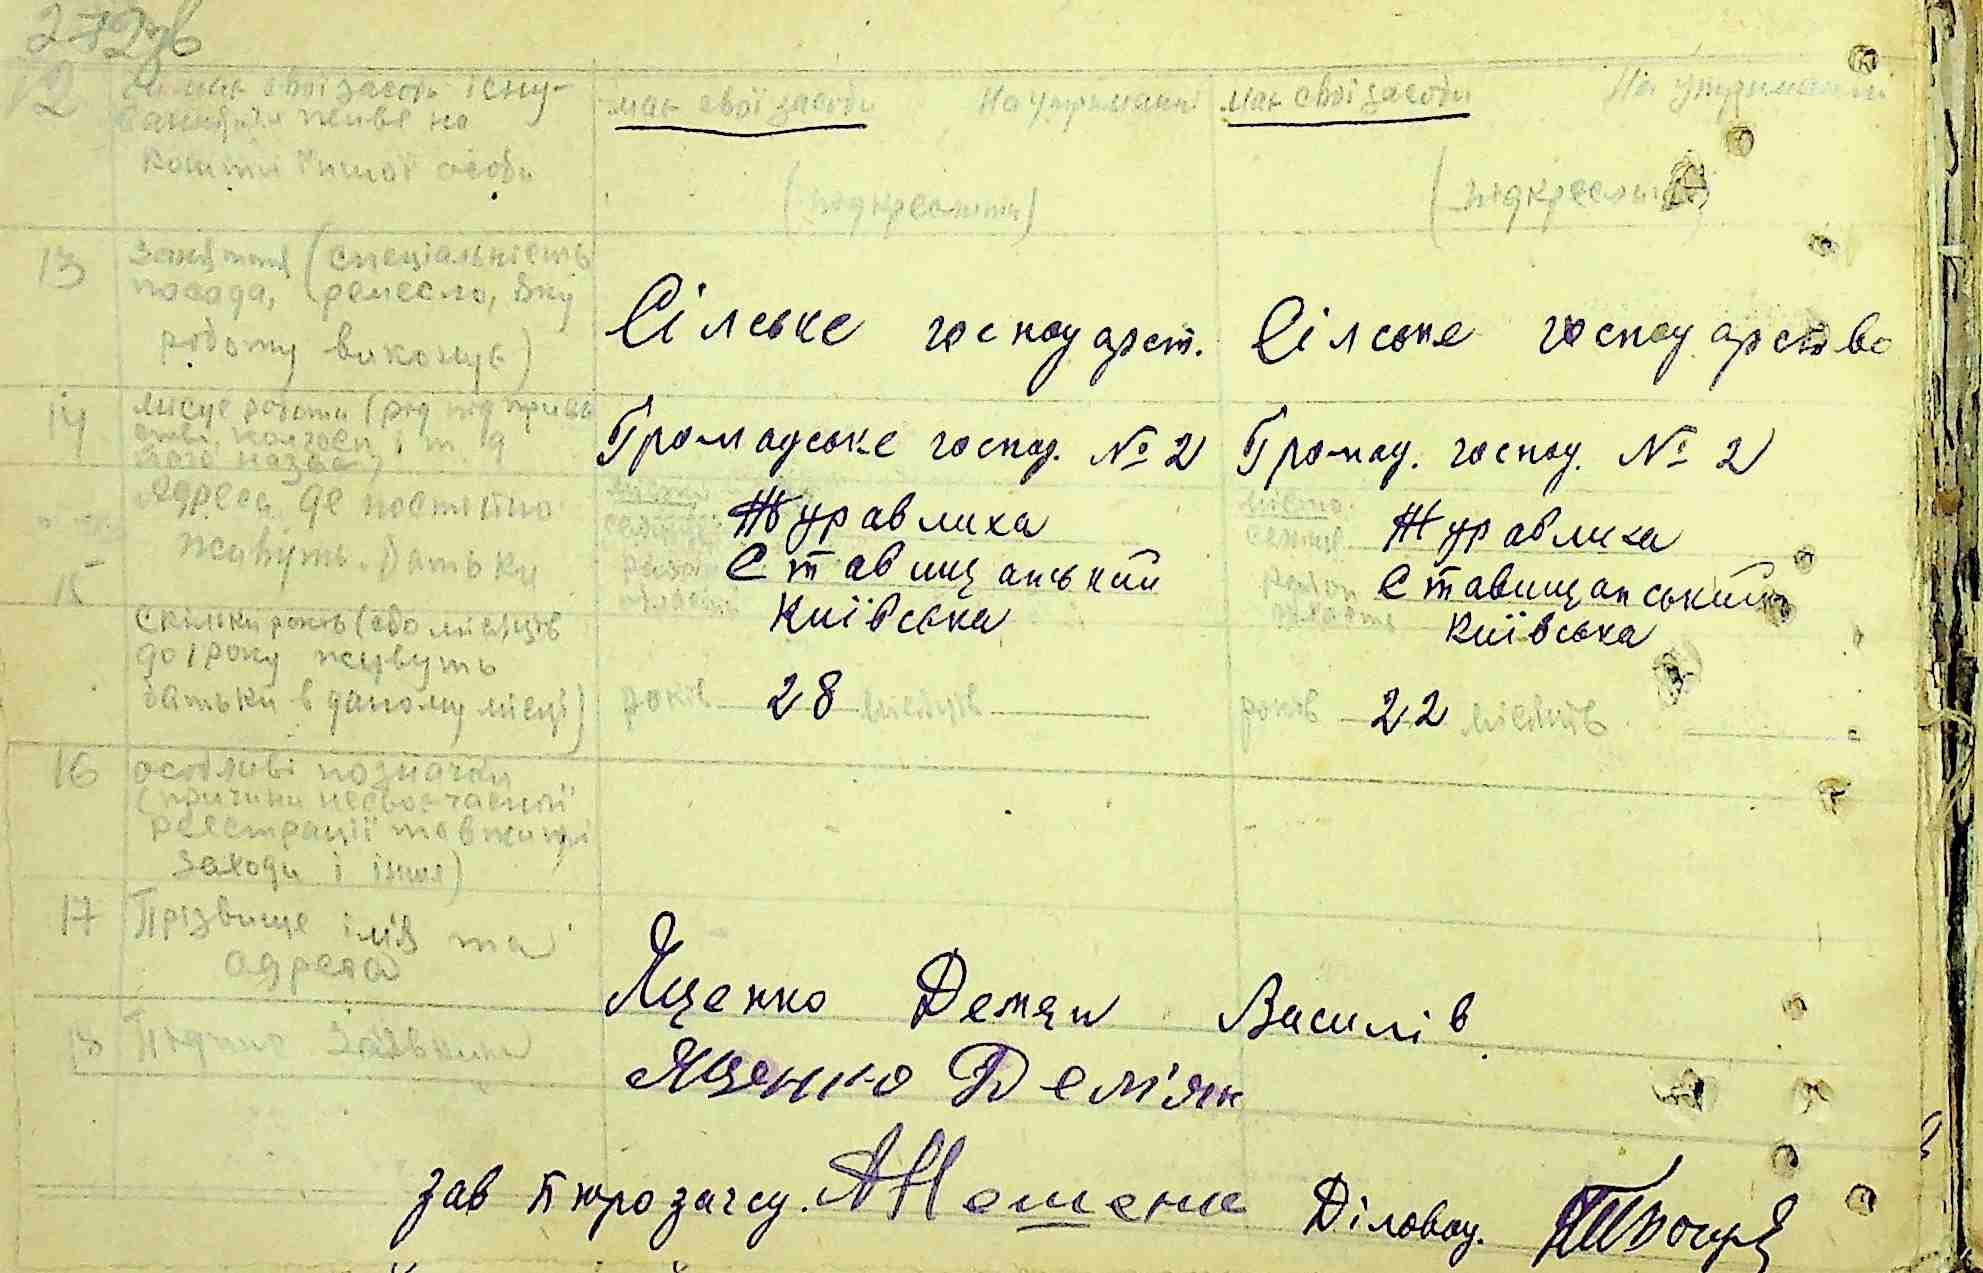 12 Чи має свої засоби існу-
вання чи живе на
кошти іншої особи
має свої засоби На утриманні
(підкреслити)
має свої засоби На утриманні
(підкреслити)
13 Заняття (спеціальність
посада, ремесло, яку
роботу виконує)
Сілське господарст.
Сілське господарство
14 Місце роботи (рід підприєм
ства, колгосп і т. д
його назва)
Громадське господ. № 2
Громад. господ. № 2
15 Адреса, де постійно
живуть батьки
місто
селище Журавлиха
район Ставищанський
область Київська
місто
селище Журавлиха
район Ставищанський
область Київська
Скільки років (або місяців
до 1 року живуть
батьки в даному місці)
років 28 місяців
років 22 місяців
16 особливі позначки
(причини несвоєчасної
реєстрації та вжиті
заходи і інше)
17 Прізвище ім'я та
адреса
Яценко Демян Василів
18 Підпис заявника
Яценко Дем'ян
зав бюро загсу. Діловод.